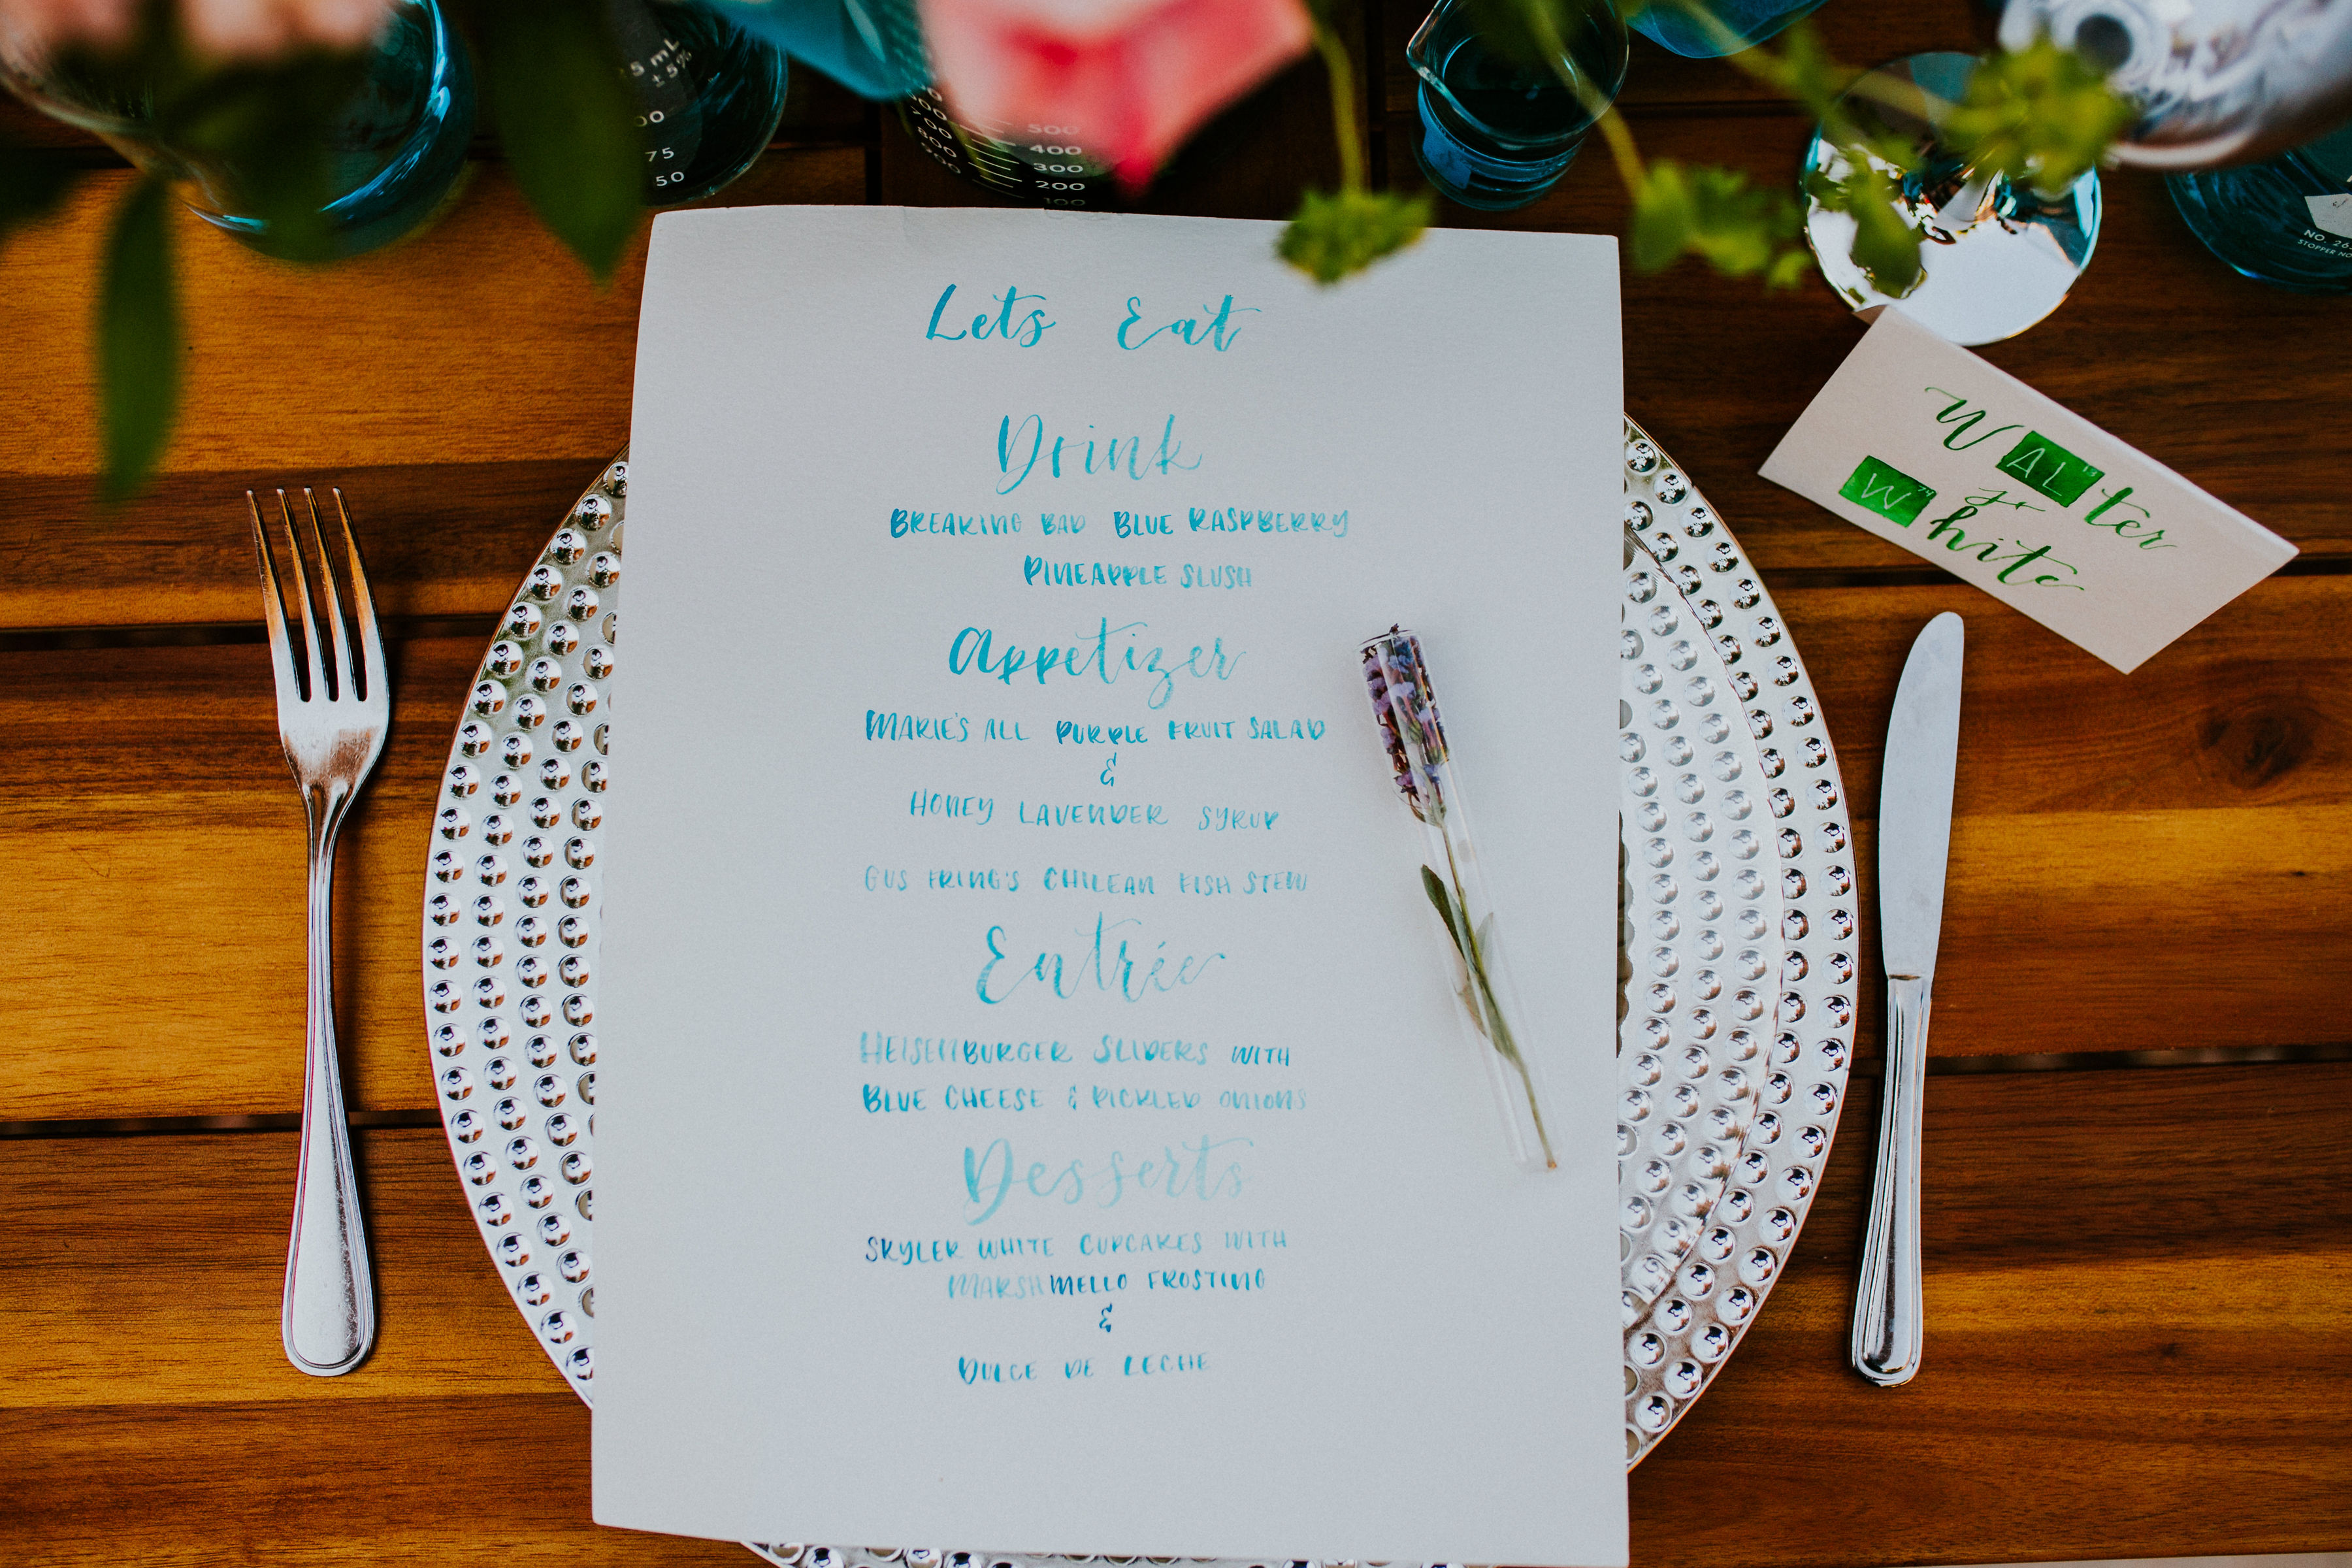 5 mL
± 5%
00
75
50
500
400
300
200
100
NO. 26
STOPPER NO
Lets Eat
Drink
BREAKING BAD BLUE RASPBERRY
PINEAPPLE SLUSH
Appetizer
MARIE'S ALL PURPLE FRUIT SALAD
&
HONEY LAVENDER SYRUP
GUS FRING'S CHILEAN FISH STEW
Entrée
HEISENBURGER SLIDERS WITH
BLUE CHEESE & PICKLED ONIONS
Desserts
SKYLER WHITE CUPCAKES WITH
MARSHMELLO FROSTING
&
DULCE DE LECHE
WALter
jr
White